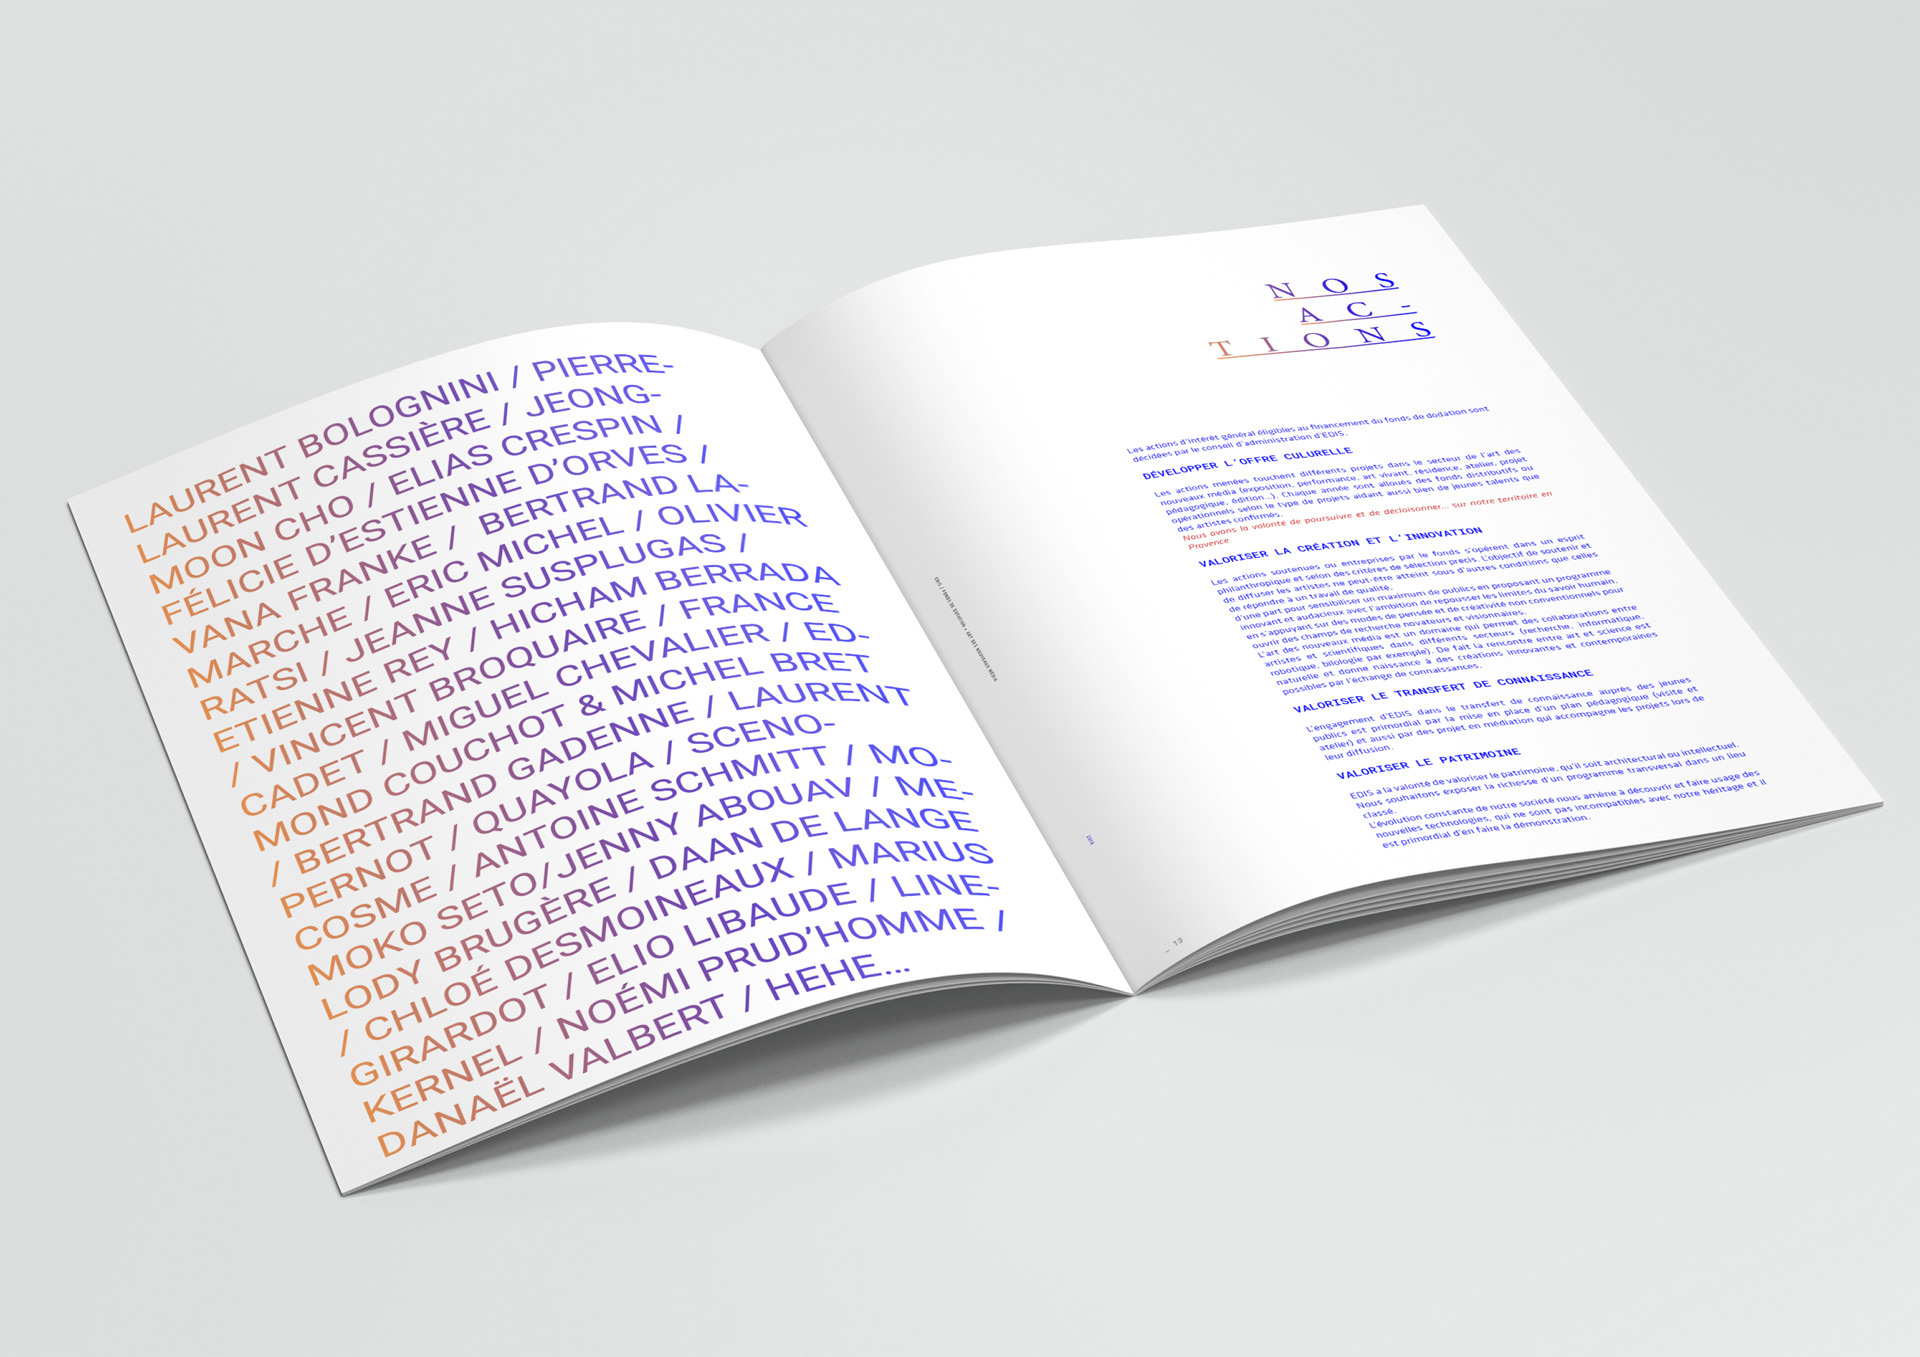 LAURENT BOLOGNINI / PIERRE-
LAURENT CASSIÈRE / JEONG-
MOON CHO / ELIAS CRESPIN /
FÉLICIE D'ESTIENNE D'ORVES /
VANA FRANKE / BERTRAND LA-
MARCHE / ERIC MICHEL / OLIVIER
RATSI / JEANNE SUSPLUGAS /
ETIENNE REY / HICHAM BERRADA
/ VINCENT BROQUAIRE / FRANCE
CADET / MIGUEL CHEVALIER / ED-
MOND COUCHOT & MICHEL BRET
/ BERTRAND GADENNE / LAURENT
PERNOT / QUAYOLA / SCENO-
COSME / ANTOINE SCHMITT / MO-
MOKO SETO/JENNY ABOUAV / ME-
LODY BRUGÈRE / DAAN DE LANGE
/ CHLOÉ DESMOINEAUX / MARIUS
GIRARDOT / ELIO LIBAUDE / LINE-
KERNEL / NOÉMI PRUD'HOMME /
DANAËL VALBERT / HEHE...
NOS
AC-
TIONS
Les actions d'intérêt général éligibles au financement du fonds de dodation sont
décidées par le conseil d'administration d'EDIS.
DÉVELOPPER L'OFFRE CULURELLE
Les actions menées touchent différents projets dans le secteur de l'art des
nouveaux média (exposition, performance, art vivant, résidence, atelier, projet
pédagogique, édition...). Chaque année sont alloués des fonds distributifs ou
opérationnels selon le type de projets aidant aussi bien de jeunes talents que
des artistes confirmés.
Nous avons la volonté de poursuivre et de decloisonner... sur notre territoire en
Provence
VALORISER LA CRÉATION ET L'INNOVATION
Les actions soutenues ou entreprises par le fonds s'opèrent dans un esprit
philanthropique et selon des critères de sélection précis. L'objectif de soutenir et
de diffuser les artistes ne peut-être atteint sous d'autres conditions que celles
de répondre à un travail de qualité.
d'une part pour sensibiliser un maximum de publics en proposant un programme
innovant et audacieux avec l'ambition de repousser les limites du savoir humain.
en s'appuyant sur des modes de pensée et de créativité non conventionnels pour
ouvrir des champs de recherche novateurs et visionnaires.
L'art des nouveaux média est un domaine qui permet des collaborations entre
artistes et scientifiques dans différents secteurs (recherche, informatique,
robotique, bilologie par exemple). De fait la rencontre entre art et science est
naturelle et donne naissance à des créations innovantes et contemporaines
possibles par l'échange de connaissances.
VALORISER LE TRANSFERT DE CONNAISSANCE
L'engagement d'EDIS dans le transfert de connaissance auprès des jeunes
publics est primordial par la mise en place d'un plan pédagogique (visite et
atelier) et aussi par des projet en médiation qui accompagne les projets lors de
leur diffusion.
VALORISER LE PATRIMOINE
EDIS a la valonté de valoriser le patrimoine, qu'il soit architectural ou intellectuel.
Nous souhaitons exposer la richesse d'un programme transversal dans un lieu
classé.
L'évolution constante de notre société nous amène à découvrir et faire usage des
nouvelles technologies, qui ne sont pas incompatibles avec notre héritage et il
est primordial d'en faire la démonstration.
EDIS / FONDS DE DOTATION + ART DES NOUVEAUX MÉDIA
— 13